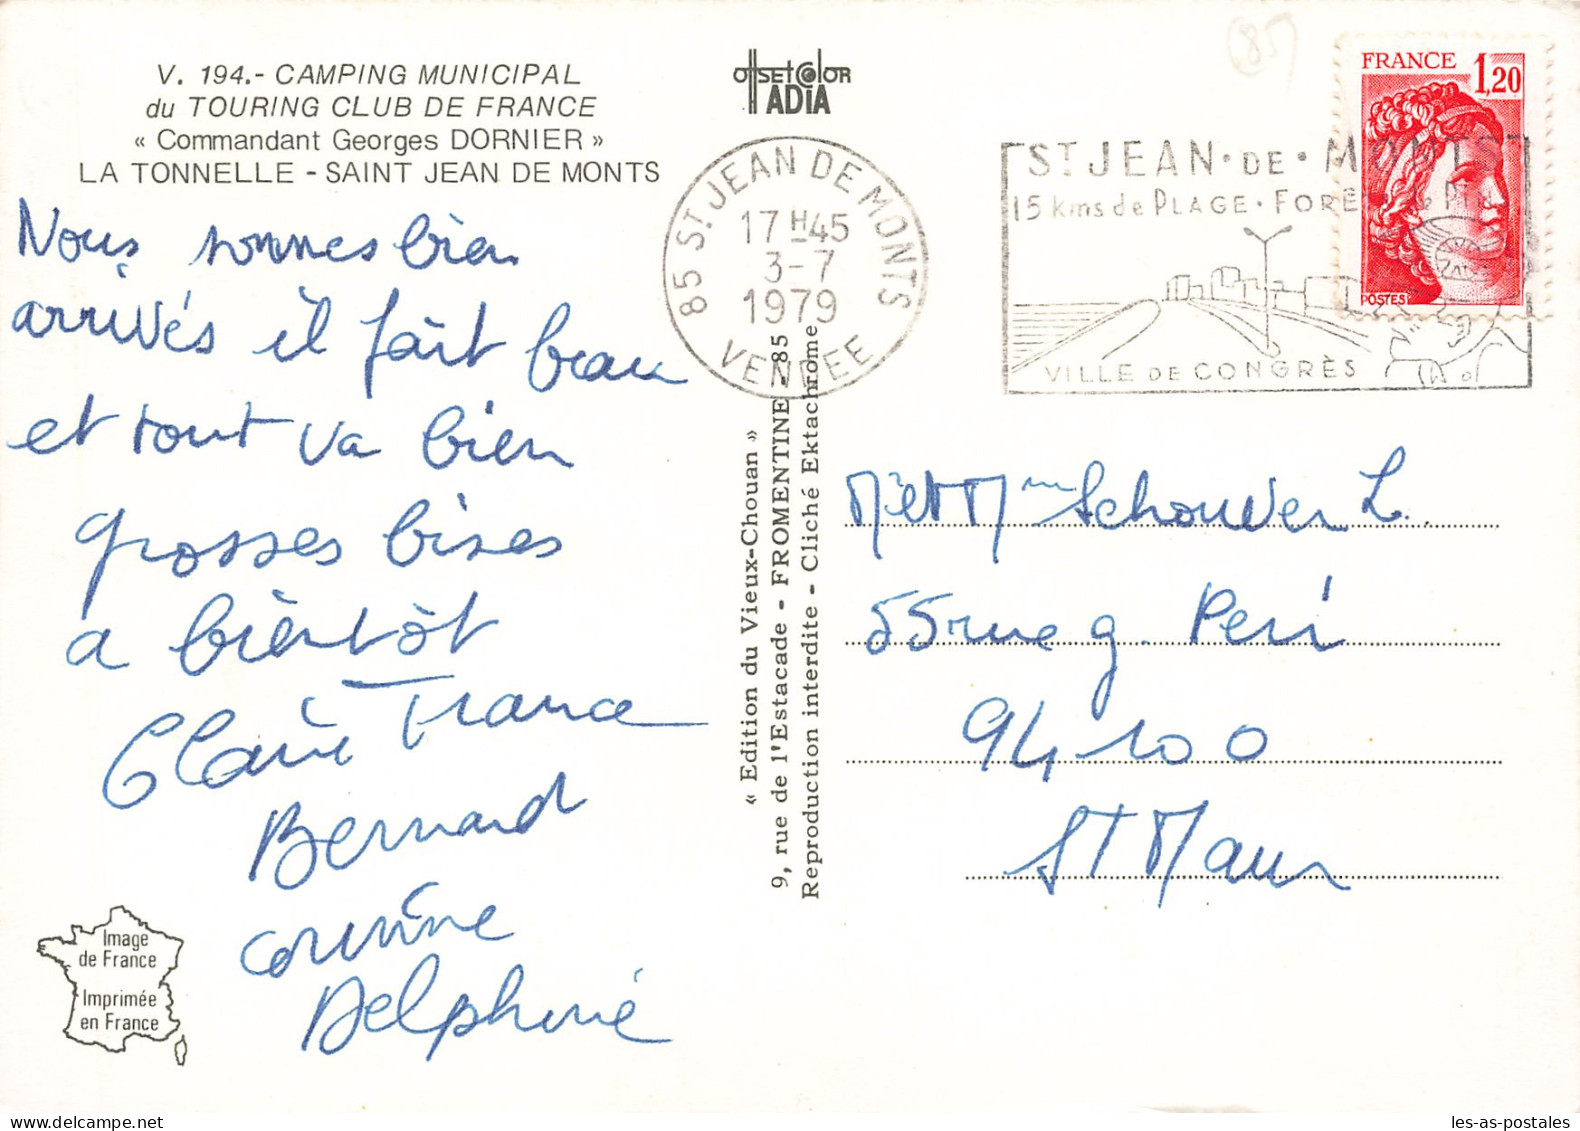 V. 194.- CAMPING MUNICIPAL
du TOURING CLUB DE FRANCE
« Commandant Georges DORNIER »
LA TONNELLE - SAINT JEAN DE MONTS
Nous sommes bien
arrivés il fait beau
et tout va bien
grosses bises
a bientôt
Claire France
Bernard
corinne
Delphine
Image
de France
Imprimée
en France
OffSET COLOR
IADIA
85 ST JEAN DE MONTS
17 H45
3-7
1979
VENDEE
« Edition du Vieux-Chouan »
9, rue de l'Estacade - FROMENTINE - 85
Reproduction interdite - Cliché Ektachrome
(85)
FRANCE 1,20
POSTES
ST JEAN · DE · MONTS
15 kms de PLAGE · FORÊ
VILLE DE CONGRÈS
Mr et Mme Schouver L.
55 rue g. Peri
94100
St Maur
les-as-postales - delcampe.net